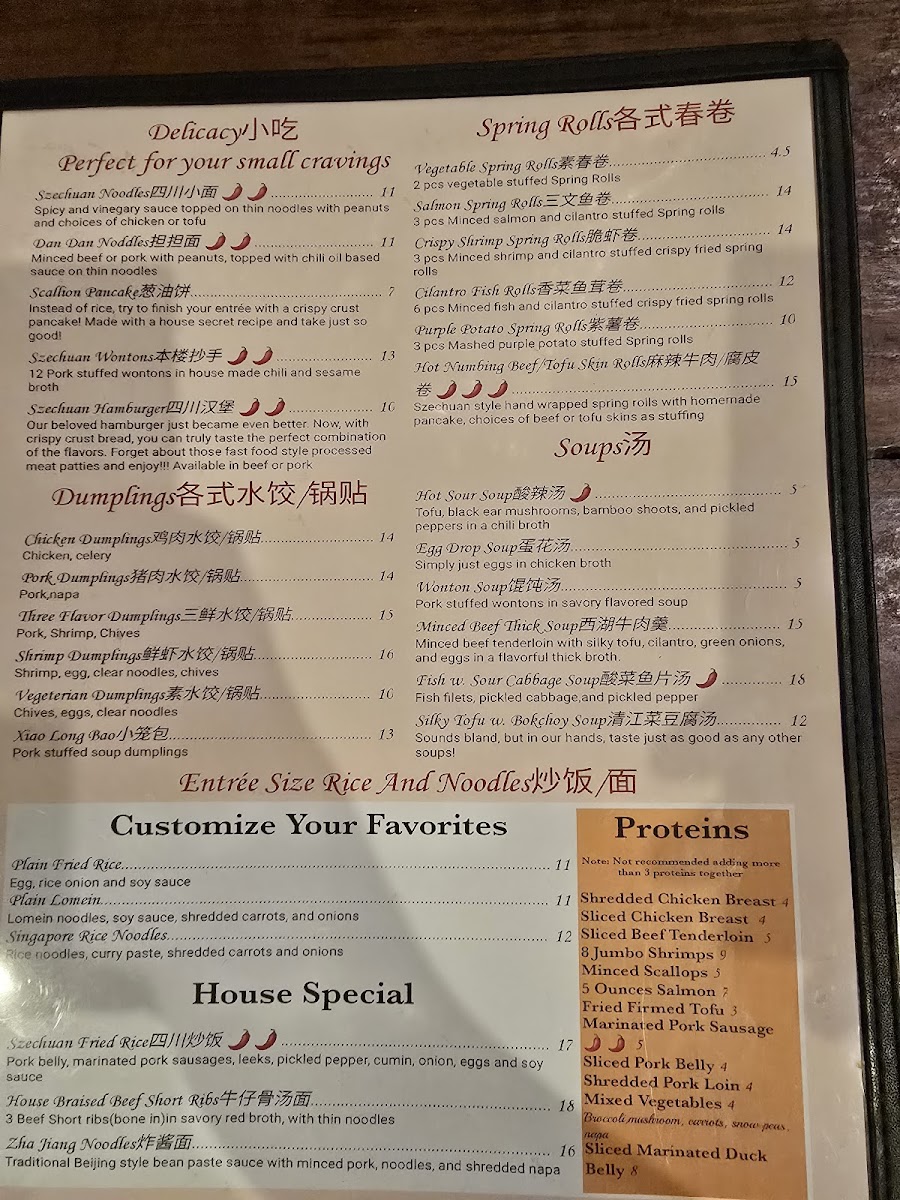 Delicacy小吃
Perfect for your small cravings
Szechuan Noodles四川小面 11
Spicy and vinegary sauce topped on thin noodles with peanuts
and choices of chicken or tofu
Dan Dan Noddles担担面 11
Minced beef or pork with peanuts, topped with chili oil based
sauce on thin noodles
Scallion Pancake葱油饼 7
Instead of rice, try to finish your entrée with a crispy crust
pancake! Made with a house secret recipe and take just so
good!
Szechuan Wontons本楼抄手 13
12 Pork stuffed wontons in house made chili and sesame
broth
Szechuan Hamburger四川汉堡 10
Our beloved hamburger just became even better. Now, with
crispy crust bread, you can truly taste the perfect combination
of the flavors. Forget about those fast food style processed
meat patties and enjoy!!! Available in beef or pork
Dumplings各式水饺/锅贴
Chicken Dumplings鸡肉水饺/锅贴 14
Chicken, celery
Pork Dumplings猪肉水饺/锅贴 14
Pork,napa
Three Flavor Dumplings三鲜水饺/锅贴 15
Pork, Shrimp, Chives
Shrimp Dumplings鲜虾水饺/锅贴 16
Shrimp, egg, clear noodles, chives
Vegeterian Dumplings素水饺/锅贴 10
Chives, eggs, clear noodles
Xiao Long Bao小笼包 13
Pork stuffed soup dumplings
Spring Rolls各式春卷
Vegetable Spring Rolls素春卷 4.5
2 pcs vegetable stuffed Spring Rolls
Salmon Spring Rolls三文鱼卷 14
3 pcs Minced salmon and cilantro stuffed Spring rolls
Crispy Shrimp Spring Rolls脆虾卷 14
3 pcs Minced shrimp and cilantro stuffed crispy fried spring
rolls
Cilantro Fish Rolls香菜鱼茸卷 12
6 pcs Minced fish and cilantro stuffed crispy fried spring rolls
Purple Potato Spring Rolls紫薯卷 10
3 pcs Mashed purple potato stuffed Spring rolls
Hot Numbing Beef/Tofu Skin Rolls麻辣牛肉/腐皮
卷 15
Szechuan style hand wrapped spring rolls with homemade
pancake, choices of beef or tofu skins as stuffing
Soups汤
Hot Sour Soup酸辣汤 5
Tofu, black ear mushrooms, bamboo shoots, and pickled
peppers in a chili broth
Egg Drop Soup蛋花汤 5
Simply just eggs in chicken broth
Wonton Soup馄饨汤 5
Pork stuffed wontons in savory flavored soup
Minced Beef Thick Soup西湖牛肉羹 15
Minced beef tenderloin with silky tofu, cilantro, green onions,
and eggs in a flavorful thick broth.
Fish w. Sour Cabbage Soup酸菜鱼片汤 18
Fish filets, pickled cabbage,and pickled pepper
Silky Tofu w. Bokchoy Soup清江菜豆腐汤 12
Sounds bland, but in our hands, taste just as good as any other
soups!
Entrée Size Rice And Noodles炒饭/面
Customize Your Favorites
Plain Fried Rice 11
Egg, rice onion and soy sauce
Plain Lomein 11
Lomein noodles, soy sauce, shredded carrots, and onions
Singapore Rice Noodles 12
Rice noodles, curry paste, shredded carrots and onions
House Special
Szechuan Fried Rice四川炒饭 17
Pork belly, marinated pork sausages, leeks, pickled pepper, cumin, onion, eggs and soy
sauce
House Braised Beef Short Ribs牛仔骨汤面 18
3 Beef Short ribs(bone in)in savory red broth, with thin noodles
Zha Jiang Noodles炸酱面 16
Traditional Beijing style bean paste sauce with minced pork, noodles, and shredded napa
Proteins
Note: Not recommended adding more
than 3 proteins together
Shredded Chicken Breast 4
Sliced Chicken Breast 4
Sliced Beef Tenderloin 5
8 Jumbo Shrimps 9
Minced Scallops 5
5 Ounces Salmon 7
Fried Firmed Tofu 3
Marinated Pork Sausage
5
Sliced Pork Belly 4
Shredded Pork Loin 4
Mixed Vegetables 4
Broccoli, mushroom, carrots, snow peas,
napa
Sliced Marinated Duck
Belly 8